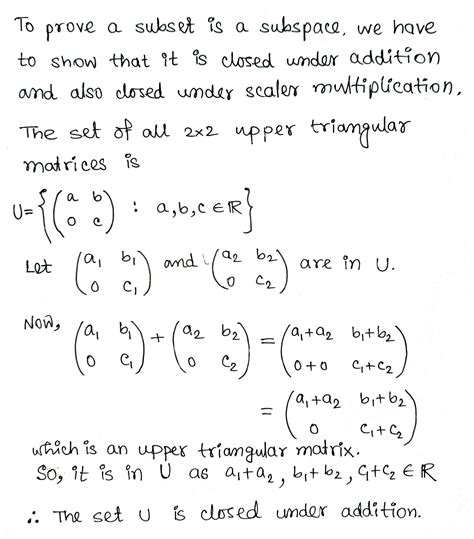 To prove a subset is a subspace, we have
to show that it is closed under addition
and also closed under scaler multiplication.
The set of all 2×2 upper triangular
matrices is
U={(a b; 0 c) : a,b,c ∈ ℝ}
Let (a₁ b₁; 0 c₁) and (a₂ b₂; 0 c₂) are in U.
Now, (a₁ b₁; 0 c₁) + (a₂ b₂; 0 c₂) = (a₁+a₂ b₁+b₂; 0+0 c₁+c₂)
= (a₁+a₂ b₁+b₂; 0 c₁+c₂)
which is an upper triangular matrix.
So, it is in U as a₁+a₂, b₁+b₂, c₁+c₂ ∈ ℝ
∴ The set U is closed under addition.